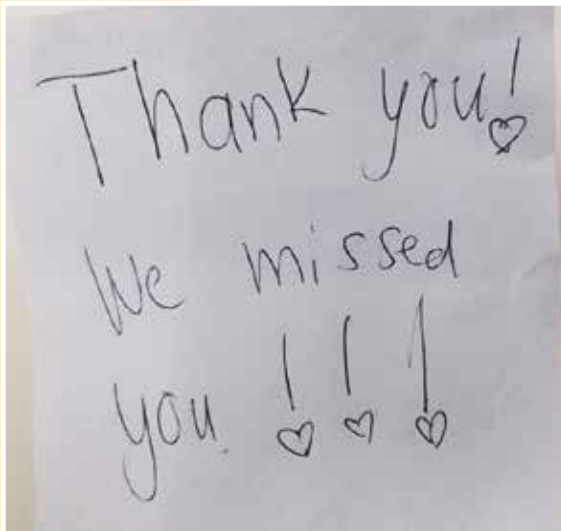 Thank you!
We missed
you !!!